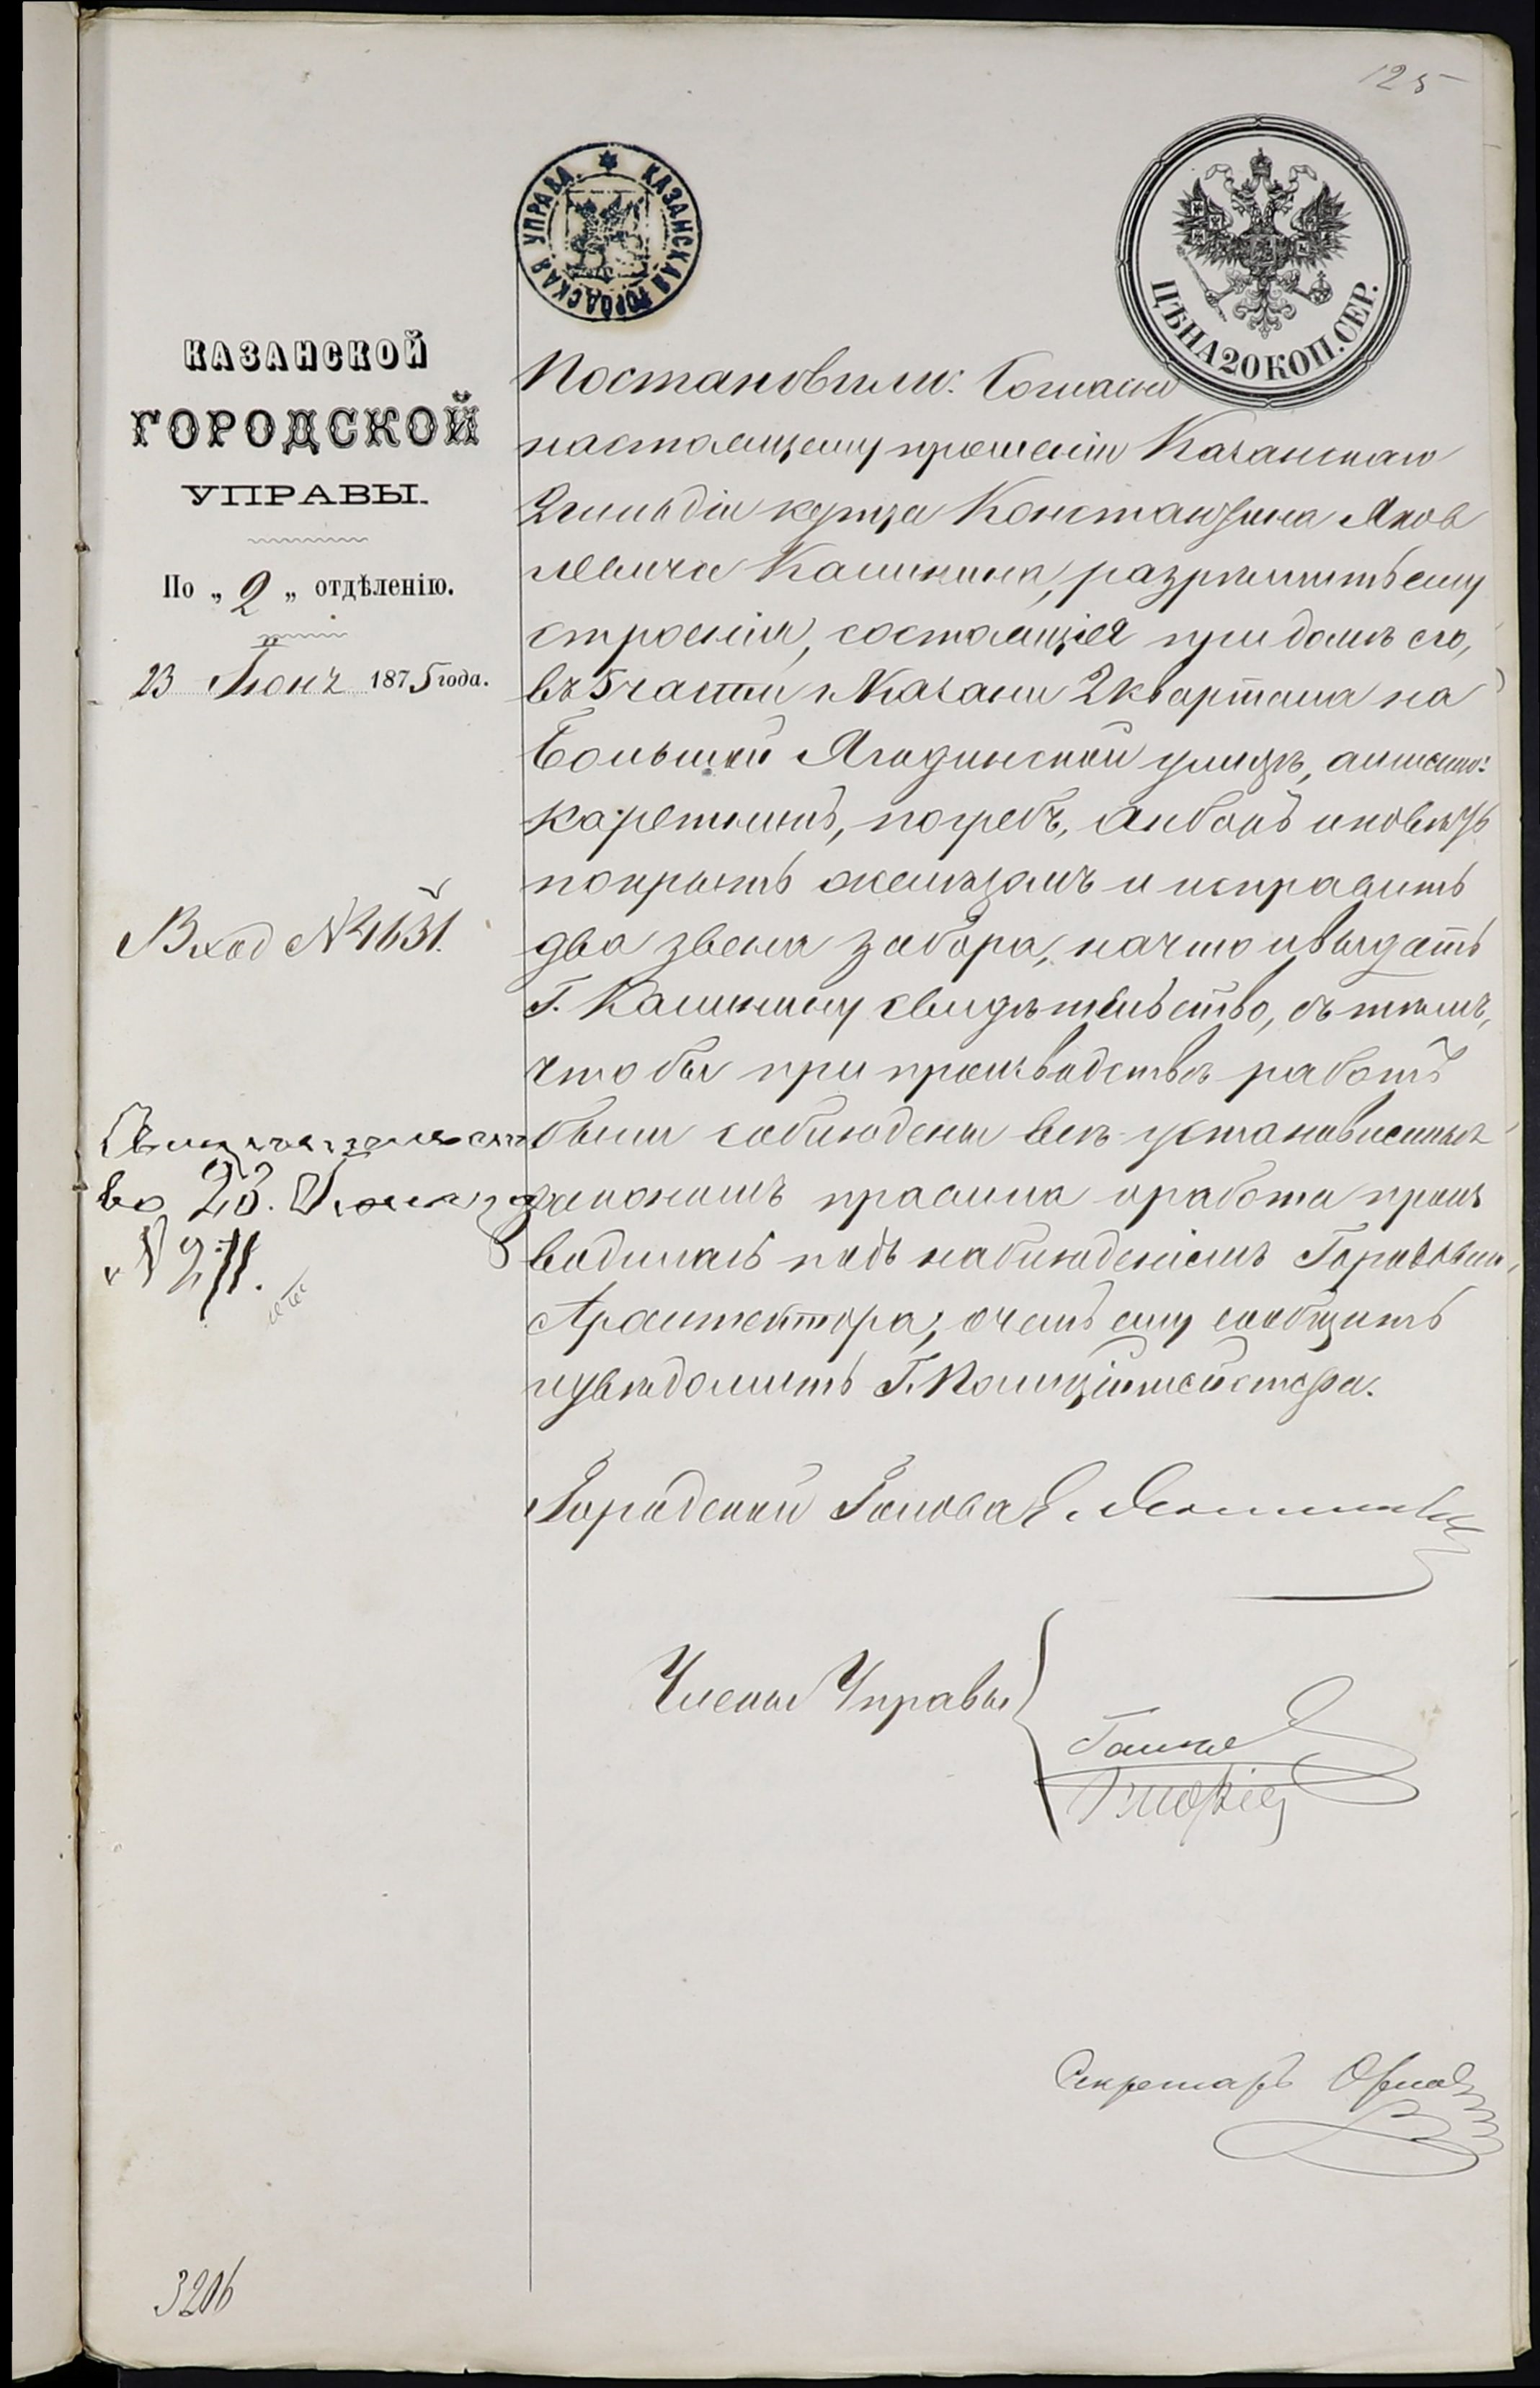 125
КАЗАНСКАЯ ГОРОДСКАЯ УПРАВА
ЦѢНА 20 КОП. СЕР.
КАЗАНСКОЙ
ГОРОДСКОЙ
УПРАВЫ.
По „ 2 „ отдѣленію.
23 Іюня 1875 года.
Вход № 4631.
Свидѣтельст
во 23. Іюня
№ 211.
Постановили: Согласно
настоящему прошенію Казанскаго
2 гильдіи купца Константина Яков
левича Калинина, разрѣшить ему
строенія, состоящія при домѣ его,
въ 5 части г. Казани 2 квартала на
Большой Ягодинской улицѣ, а именно:
каретникъ, погребъ, анбаръ и навѣсъ
покрыть желѣзомъ и исправить
два звена забора, на что и выдать
Г. Калинину свидѣтельство, съ тѣмъ,
что бы при производствѣ работъ
были соблюдены всѣ установленныя
закономъ правила и работа произ
водилась подъ наблюденіемъ Городоваго
Архитектора, о чемъ ему сообщить
и увѣдомить Г. Полиціймейстера.
Городской Голова Е.
Члены Управы
Секретарь Орлов
3206